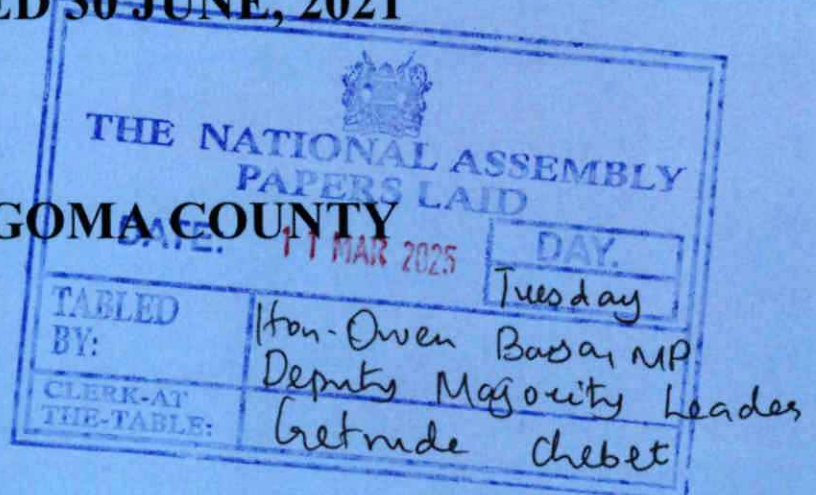 LD 30 JUNE, 2021
THE NATIONAL ASSEMBLY
PAPERS LAID
GOMA COUNTY
DATE: 11 MAR 2025
DAY.
Tuesday
TABLED BY:
Hon. Owen MP
Deputy Majority Leader
CLERK-AT THE-TABLE:
Getrude Chebet